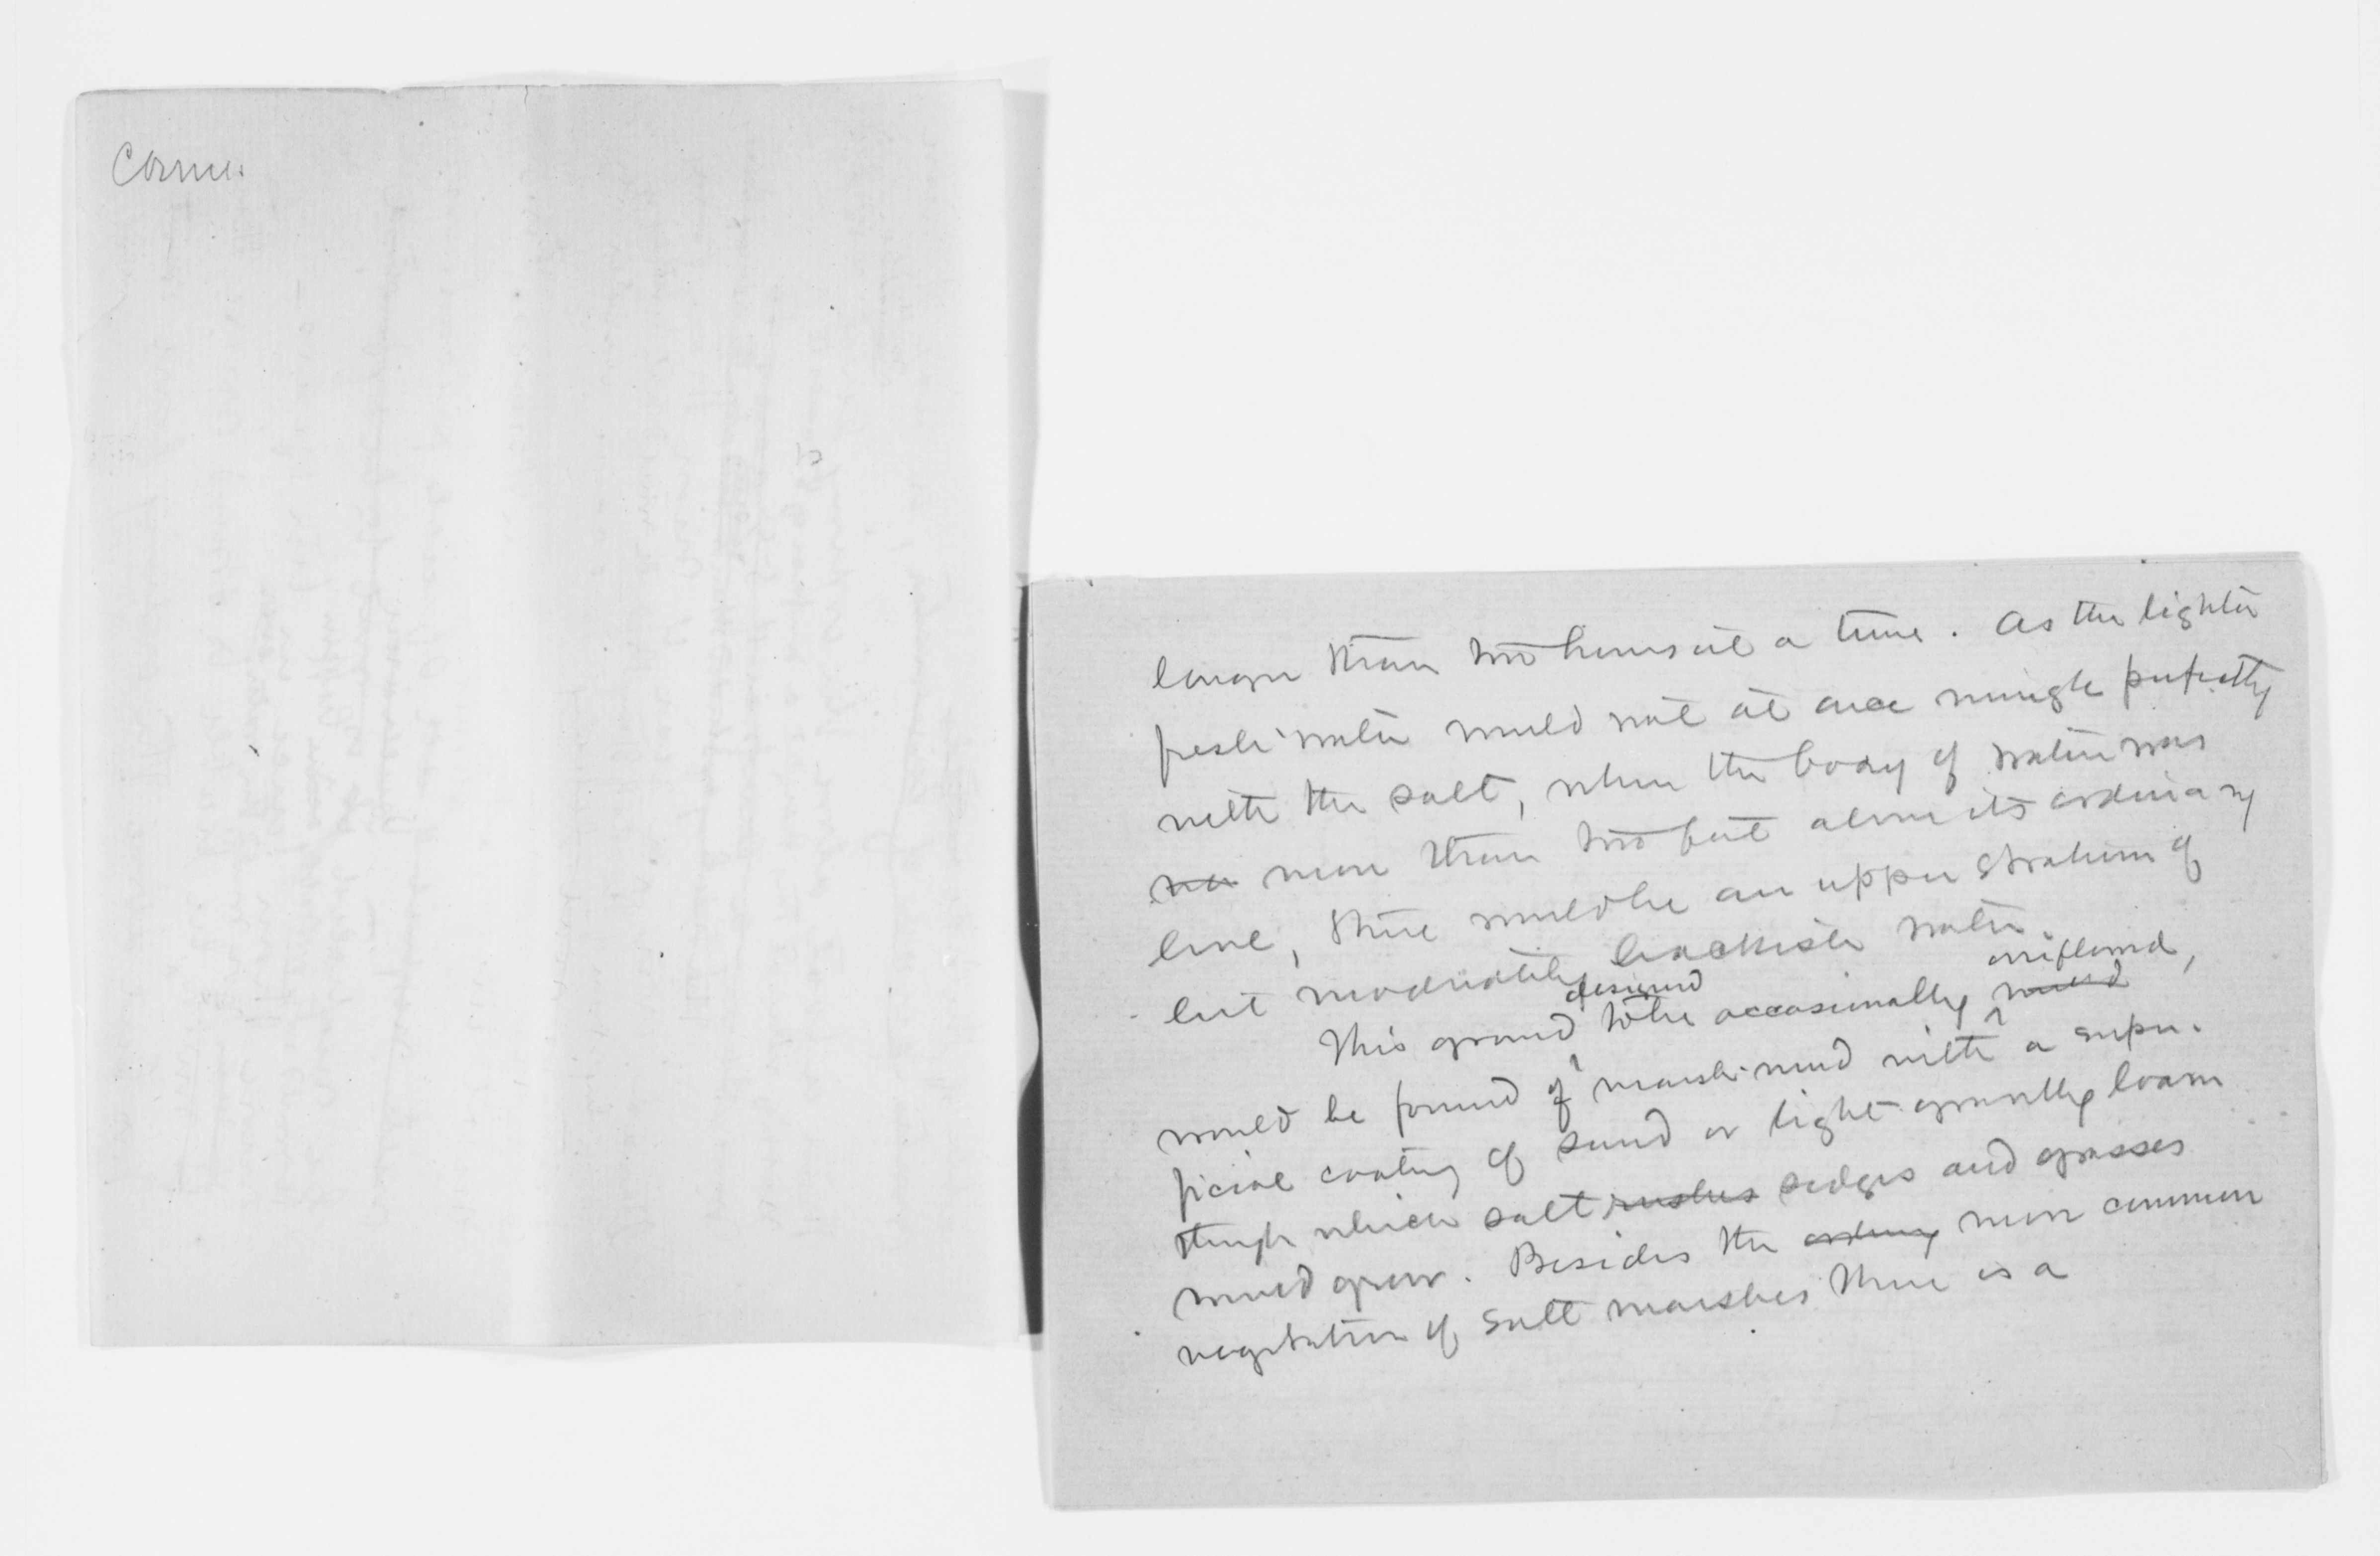 longer than two hours at a time. As the lighter
fresh water would not at once mingle perfectly
with the salt, when the body of water was
no more than two feet above its ordinary
level, there would be an upper stratum of
but moderately brackish water.
This ground designed to be occasionally overflowed,
would be formed of marsh-mud with a super-
ficial coating of sand or light gravelly loam
through which salt rushes sedges and grasses
would grow. Besides the more common
vegetation of salt marshes there is a